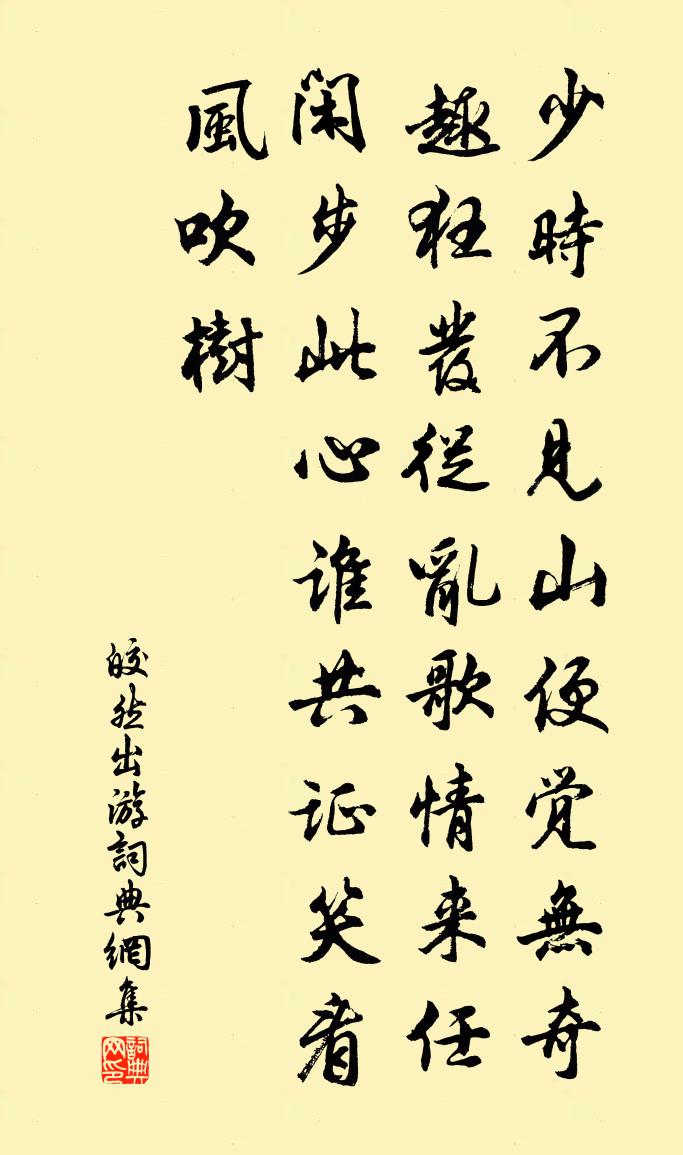 少時不見山便覺無奇
趣狂發從亂歌情来任
閑步此心誰共証笑看
風吹樹
皎然出游詞典網集
詞典网印